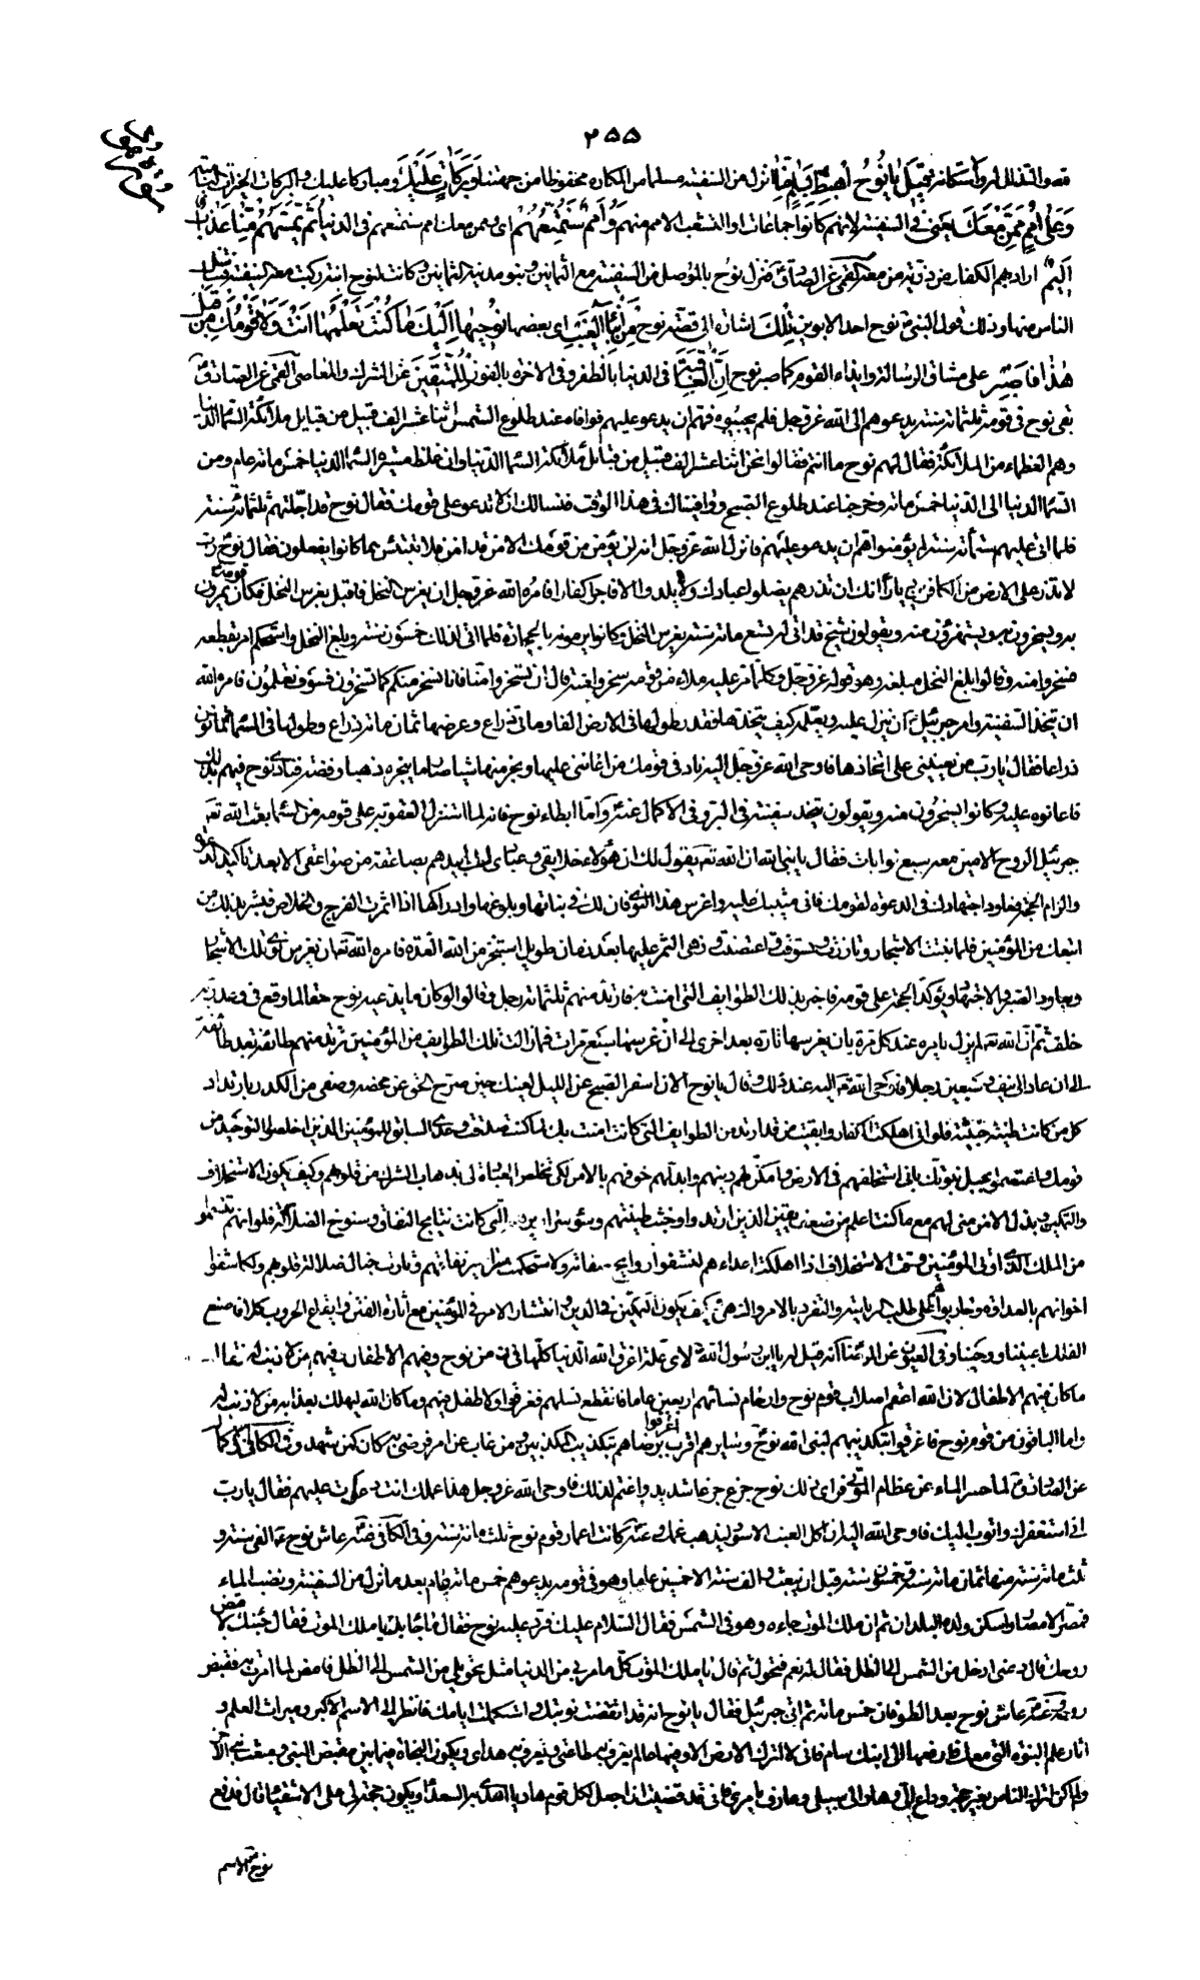 ٢٥٥
قيل يا نوح اهبط بسلام منا انزل من السفينة مسلما من المكاره محفوظا من جهتنا وبركات عليك ومباركا عليك والبركات الخيرات النامية
وعلى امم ممن معك يعنى فى السفينة لانهم كانوا جماعات او لتشعب الامم منهم وامم سنمتعهم اى وممن معك امم سنمتعهم فى الدنيا ثم يمسهم منا عذاب
اليم اراد بهم الكفار من ذرية من معه القمى عن الصادق فنزل نوح بالموصل من السفينة مع الثمانين وبنو مدينة الثمانين وكانت لنوح ابنة ركبت معه السفينة فتناسل
الناس منها وذلك قول النبى نوح احد الابوين تلك اشارة الى قصة نوح من انباء الغيب اى بعضها نوحيها اليك ما كنت تعلمها انت ولا قومك من قبل
هذا فاصبر على مشاق الرسالة وايذاء القوم كما صبر نوح ان العاقبة فى الدنيا بالظفر وفى الاخرة بالفوز للمتقين عن الشرك والمعاصى القمى عن الصادق
بقى نوح فى قومه ثلثمائة سنة يدعوهم الى الله عز وجل فلم يجيبوه فهم ان يدعو عليهم فوافاه عند طلوع الشمس اثنا عشر الف قبيل من قبايل ملائكة السماء الدنيا
وهم العظماء من الملائكة فقال لهم نوح ما انتم فقالوا نحن اثنا عشر الف قبيل من قبائل ملائكة السماء الدنيا وان غلظ مسيرة السماء الدنيا خمسمائة عام ومن
السماء الدنيا الى الدنيا خمسمائة وخرجنا عند طلوع الصبح ووافيناك فى هذا الوقت فنسالك ان لا تدعو على قومك فقال نوح قد اجلتهم ثلثمائة سنة
فلما اتى عليهم ستمائة سنة ولم يؤمنوا هم ان يدعو عليهم فانزل الله عز وجل انه لن يؤمن من قومك الا من قد امن فلا تبتئس بما كانوا يفعلون فقال نوح رب
لا تذر على الارض من الكافرين ديارا انك ان تذرهم يضلوا عبادك ولا يلدوا الا فاجرا كفارا فامره الله عز وجل ان يغرس النخل فاقبل يغرس النخل فكان قومه يمرون
به ويسخرون به ويستهزؤن منه ويقولون شيخ قد اتى له تسعمائة سنة يغرس النخل وكانوا يرمونه بالحجارة فلما اتى لذلك خمسون سنة وبلغ النخل واستحكم امر بقطعه
فسخروا منه وقالوا بلغ النخل مبلغه وهو قوله عز وجل وكلما مر عليه ملاء من قومه سخروا منه قال ان تسخروا منا فانا نسخر منكم كما تسخرون فسوف تعلمون فامره الله
ان يتخذ السفينة وامر جبرئيل ان ينزل عليه ويعلمه كيف يتخذها فقدر طولها فى الارض الفا ومائتى ذراع وعرضها ثمان مائة ذراع وطولها فى السماء ثمانون
ذراعا فقال يا رب من يعيننى على اتخاذها فاوحى الله عز وجل اليه ناد فى قومك من اعاننى عليها ونجر منها شيئا صار ما ينجره ذهبا وفضة فنادى نوح فيهم بذلك
فاعانوه عليه وكانوا يسخرون منه ويقولون يتخذ سفينة فى البر وفى الاكمال عنه واما ابطاء نوح فانه لما استنزل العقوبة على قومه من السماء بعث الله تعه
جبرئيل الروح الامين معه سبع نوايات فقال يا نبى الله ان الله تعه يقول لك ان هؤلاء خلايقى وعبادى لست ابيدهم بصاعقة من صواعقى الا بعد تاكيد الدعوة
والزام الحجة فعاود اجتهادك فى الدعوة لقومك فانى مثيبك عليه واغرس هذا النوى فان لك فى نباتها وبلوغها وادراكها اذا اثمرت الفرج والخلاص فبشر بذلك من
اتبعك من المؤمنين فلما نبتت الاشجار وتازرت وتسوقت واغصنت وزهى الثمر عليها بعد زمان طويل استنجز من الله العدة فامره الله تعه ان يغرس نوى تلك الاشجار
ويعاود الصبر والاجتهاد ويؤكد الحجة على قومه فاخبر بذلك الطوايف التى امنت به فارتد منهم ثلثمائة رجل وقالوا لو كان ما يدعيه نوح حقا لما وقع فى وعد ربه
خلف ثم ان الله تعه لم يزل يامره عند كل مرة بان يغرسها تارة بعد اخرى الى ان غرسها سبع مرات فما زالت تلك الطوايف من المؤمنين ترتد منهم طائفة بعد طائفة
الى ان عاد الى نيف وسبعين رجلا فاوحى الله تعه اليه عند ذلك وقال يا نوح الان اسفر الصبح عن الليل لعينك حين صرح الحق عن محضه وصفى من الكدر بارتداد
كل من كانت طينته خبيثة فلو انى اهلكت الكفار وابقيت من قد ارتد من الطوايف التى كانت امنت بك لما كنت صدقت وعدى السابق للمؤمنين الذين اخلصوا التوحيد من
قومك واعتصموا بحبل نبوتك بانى استخلفهم فى الارض وامكن لهم دينهم وابدلهم خوفهم بالامن لكى تخلص العبادة لى بذهاب الشرك من قلوبهم وكيف يكون الاستخلاف
والتمكين وبذل الامن منى لهم مع ما كنت اعلم من ضعف يقين الذين ارتدوا وخبث طينتهم وسوء سرائرهم التى كانت نتايج النفاق وسنوخ الضلالة فلو انهم تنسموا
من الملك الذى اوتى المؤمنين وقت الاستخلاف اذا اهلكت اعداءهم لنشقوا روايح صفاته ولاستحكمت سرائر نفاقهم وثارت خبال ضلالة قلوبهم ولكاشفوا
اخوانهم بالعداوة وحاربوهم على طلب الرياسة والتفرد بالامر والنهى وكيف يكون التمكين فى الدين وانتشار الامر فى المؤمنين مع اثارة الفتن وايقاع الحروب كلا فاصنع
الفلك باعيننا ووحينا وفى العيون عن الرضا انه قيل له يا ابن رسول الله لاى علة اغرق الله الدنيا كلها فى زمن نوح وفيهم الاطفال وفيهم من لا ذنب له فقال
ما كان فيهم الاطفال لان الله اعقم اصلاب قوم نوح وارحام نسائهم اربعين عاما فانقطع نسلهم فغرقوا ولا طفل فيهم وما كان الله ليهلك بعذابه من لا ذنب له
واما الباقون من قوم نوح فاغرقوا بتكذيبهم لنبى الله نوح وسايرهم اغرقوا برضاهم بتكذيب المكذبين ومن غاب عن امر فرضى به كان كمن شهده وفى الكافى
عن الصادق لما حسر الماء عن عظام الموتى فراى ذلك نوح جزع جزعا شديدا واغتم لذلك فاوحى الله عز وجل هذا عملك انت دعوت عليهم فقال يا رب
انى استغفرك واتوب اليك فاوحى الله اليه ان كل العنب الاسود ليذهب غمك وعنه كانت اعمار قوم نوح ثلثمائة سنة وفى الكافى عنه عاش نوح الفى سنة و
ثلثمائة سنة منها ثمان مائة سنة وخمسون سنة قبل ان يبعث والف سنة الا خمسين عاما وهو فى قومه يدعوهم وخمسمائة عام بعد ما نزل من السفينة ونضب الماء
فمصر الامصار واسكن ولده البلدان ثم ان ملك الموت جاءه وهو فى الشمس فقال السلام عليك فرد عليه نوح فقال ما جاء بك يا ملك الموت فقال جئتك لاقبض
روحك قال دعنى ادخل من الشمس الى الظل فقال له نعم فتحول ثم قال يا ملك الموت كل ما مر بى من الدنيا مثل تحويلى من الشمس الى الظل فامض لما امرت به فقبض
روحه وعنه عاش نوح بعد الطوفان خمسمائة ثم اتى جبرئيل فقال يا نوح انه قد انقضت نبوتك واستكملت ايامك فانظر الى الاسم الاكبر وميراث العلم و
اثار علم النبوة التى معك فادفعها الى ابنك سام فانى لا اترك الارض الا وفيها عالم يعرف به طاعتى ويعرف به هداى ويكون النجاة فيما بين مقبض النبى ومبعث النبى الاخر
ولم اكن اترك الناس بغير حجة وداع الى وهاد الى سبيلى وعارف بامرى فانى قد قضيت ان اجعل لكل قوم هاديا اهدى به السعداء ويكون حجة لى على الاشقياء قال فدفع
نوح الاسم